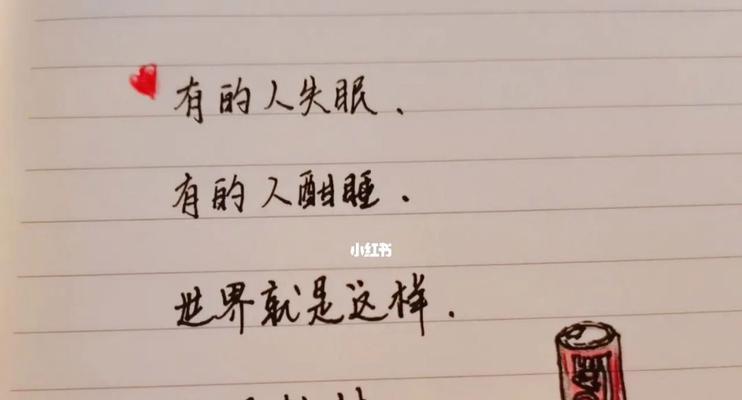 有的人失眠.
有的人酣睡.
小红书
世界就是这样.